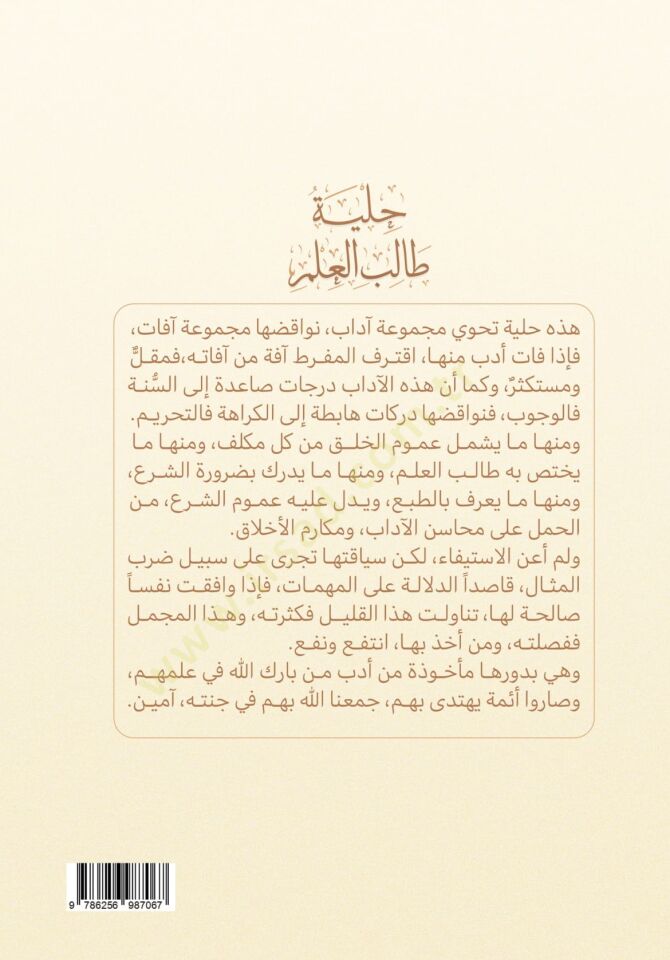 حِلْيَةُ
طَالِبِ العِلْمِ
هذه حلية تحوي مجموعة آداب، نواقضها مجموعة آفات،
فإذا فات أدب منها، اقترف المفرط آفة من آفاته،فمقلٌّ
ومستكثرٌ، وكما أن هذه الآداب درجات صاعدة إلى السُّنة
فالوجوب، فنواقضها دركات هابطة إلى الكراهة فالتحريم.
ومنها ما يشمل عموم الخلق من كل مكلف، ومنها ما
يختص به طالب العلم، ومنها ما يدرك بضرورة الشرع،
ومنها ما يعرف بالطبع، ويدل عليه عموم الشرع، من
الحمل على محاسن الآداب، ومكارم الأخلاق.
ولم أعن الاستيفاء، لكن سياقتها تجرى على سبيل ضرب
المثال، قاصداً الدلالة على المهمات، فإذا وافقت نفساً
صالحة لها، تناولت هذا القليل فكثرته، وهذا المجمل
ففصلته، ومن أخذ بها، انتفع ونفع.
وهي بدورها مأخوذة من أدب من بارك الله في علمهم،
وصاروا أئمة يهتدى بهم، جمعنا الله بهم في جنته، آمين.
www.irsad.com.tr
9 786256 987067